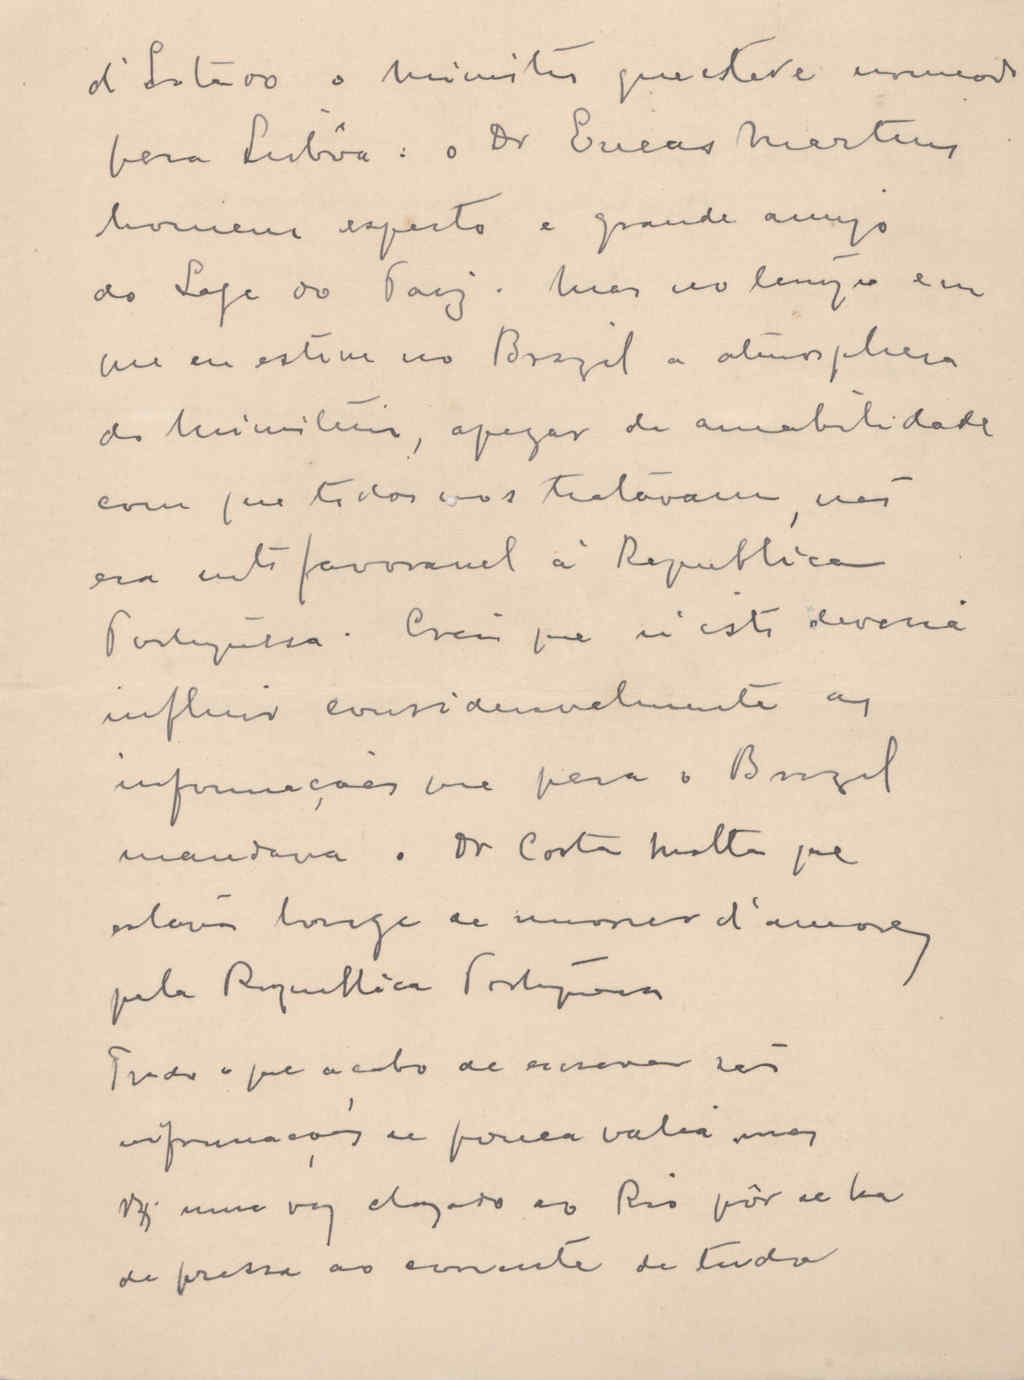 d'Estado o ministro que esteve nomeado
para Lisbôa: o Dr Eneas Martins
homem esperto e grande amigo
do Lage do Paiz. Mas no tempo em
que eu estive no Brazil a atmosphera
do Ministerio, apezar da amabilidade
com que todos nos tratavam, não
era muito favoravel á Republica
Portugueza. Creio que n'isto deveria
influir consideravelmente as
informações que para o Brazil
mandava o Dr Costa Motta que
estava longe de morrer d'amores
pela Republica Portugueza
Tudo o que acabo de escrever são
informações de pouca valia mas
uma vez chegado ao Rio pôr se ha
depressa ao corrente de tudo